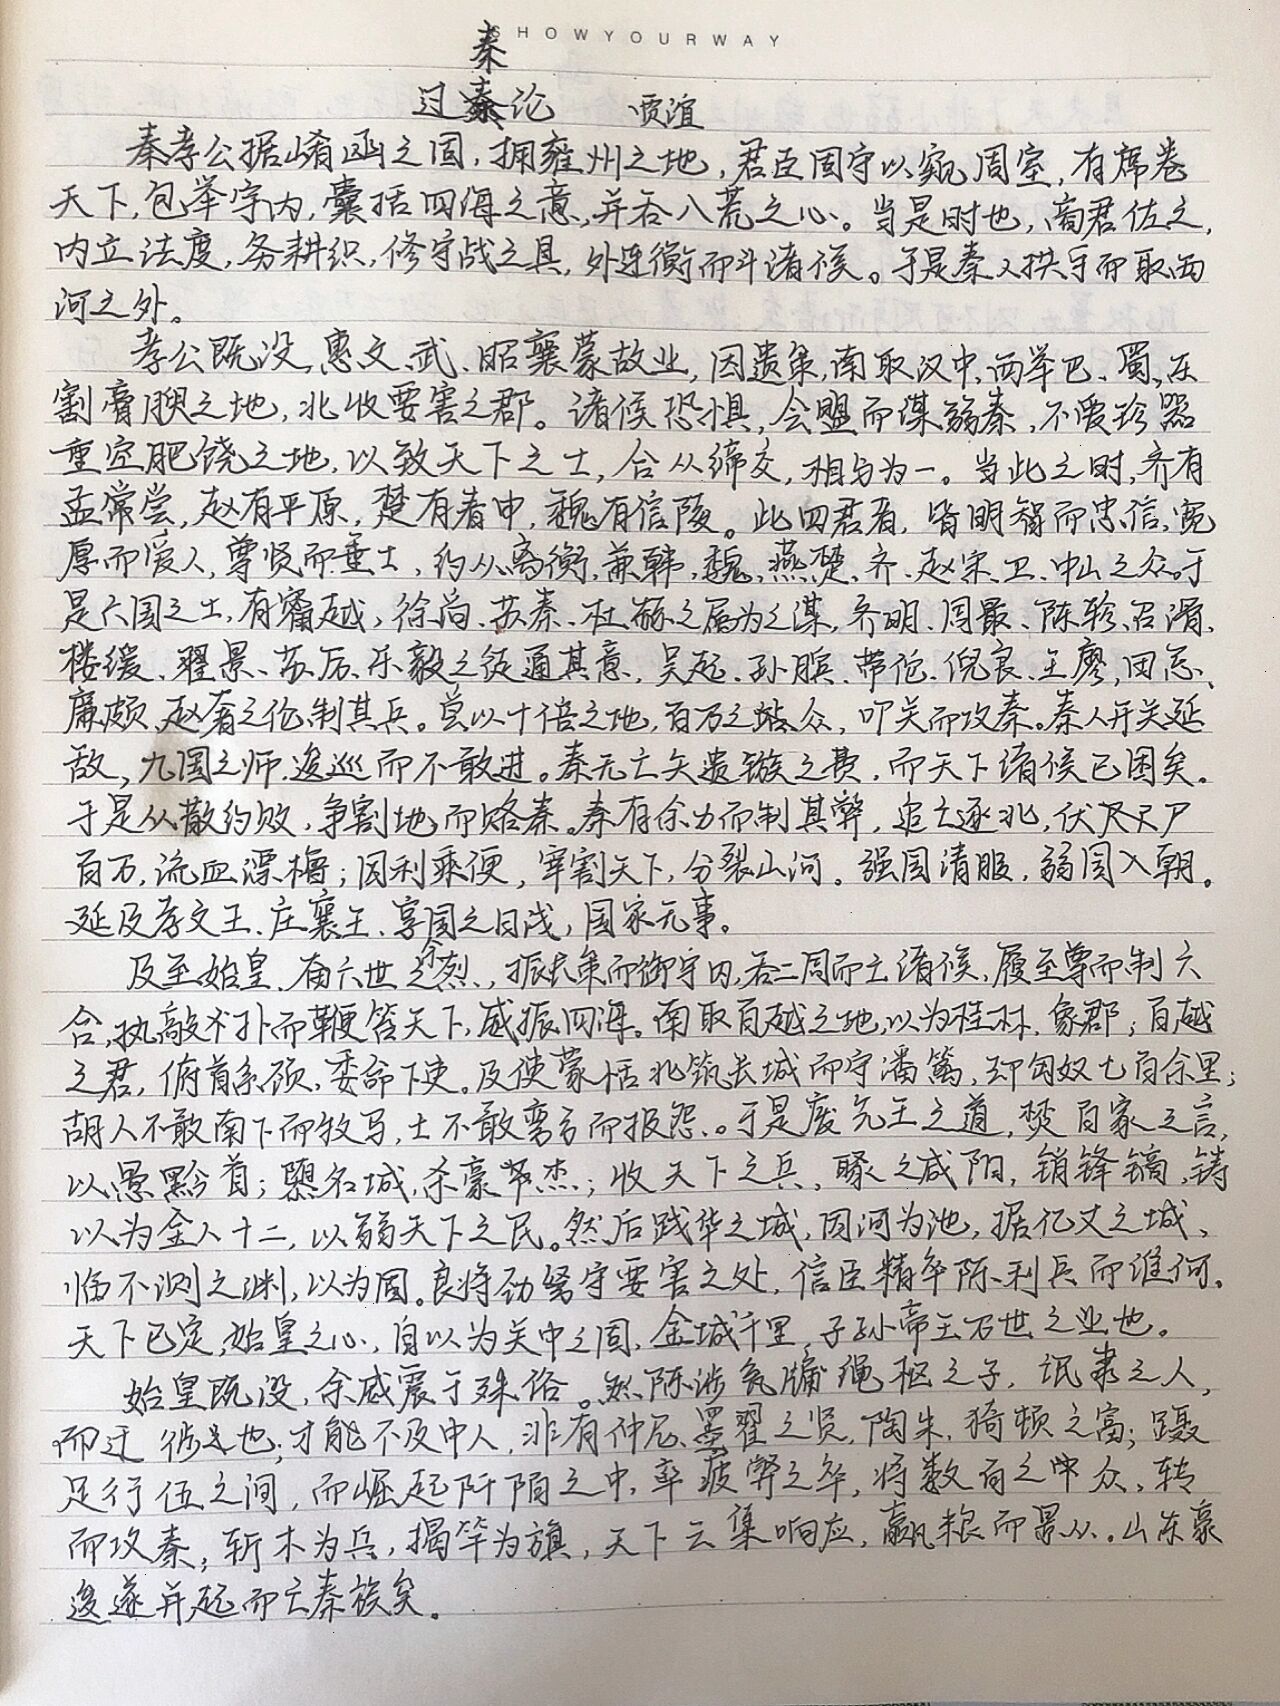 SHOWYOURWAY
秦
过秦论 贾谊
秦孝公据崤函之固，拥雍州之地，君臣固守以窥周室，有席卷
天下，包举宇内，囊括四海之意，并吞八荒之心。当是时也，商君佐之，
内立法度，务耕织，修守战之具，外连衡而斗诸侯。于是秦人拱手而取西
河之外。
孝公既没，惠文、武、昭襄蒙故业，因遗策，南取汉中，西举巴、蜀，东
割膏腴之地，北收要害之郡。诸侯恐惧，会盟而谋弱秦，不爱珍器
重宝肥饶之地，以致天下之士，合从缔交，相与为一。当此之时，齐有
孟常尝，赵有平原，楚有春申，魏有信陵。此四君者，皆明智而忠信，宽
厚而爱人，尊贤而重士，约从离衡，兼韩，魏、燕、楚、齐、赵、宋、卫、中山之众。于
是六国之士，有甯越，徐尚、苏秦、杜赫之属为之谋，齐明、周最、陈轸、召滑、
楼缓、翟景、苏厉、乐毅之徒通其意，吴起、孙膑、带佗、倪良、王廖，田忌、
廉颇、赵奢之伦制其兵。尝以十倍之地，百万之众，叩关而攻秦。秦人开关延
敌，九国之师，逡巡而不敢进。秦无亡矢遗镞之费，而天下诸侯已困矣。
于是从散约败，争割地而赂秦。秦有余力而制其弊，追亡逐北，伏尸
百万，流血漂橹；因利乘便，宰割天下，分裂山河。强国请服，弱国入朝。
延及孝文王、庄襄王、享国之日浅，国家无事。
及至始皇，奋六世之余烈，振长策而御宇内，吞二周而亡诸侯，履至尊而制六
合，执敲扑而鞭笞天下，威振四海。南取百越之地，以为桂林、象郡；百越
之君，俯首系颈，委命下吏。及使蒙恬北筑长城而守潘篱，却匈奴七百余里；
胡人不敢南下而牧马，士不敢弯弓而报怨。于是废先王之道，焚百家之言，
以愚黔首；隳名城，杀豪杰；收天下之兵，聚之咸阳，销锋镝，铸
以为金人十二，以弱天下之民。然后践华之城，因河为池，据亿丈之城、
临不测之渊，以为固。良将劲弩守要害之处，信臣精卒陈利兵而谁何。
天下已定，始皇之心，自以为关中之固，金城千里，子孙帝王万世之业也。
始皇既没，余威震于殊俗。然陈涉瓮牖绳枢之子，氓隶之人，
而迁徙之也；才能不及中人，非有仲尼、墨翟之贤，陶朱、猗顿之富；蹑
足行伍之间，而崛起阡陌之中，率疲弊之卒，将数百之众，转
而攻秦；斩木为兵，揭竿为旗，天下云集响应，赢粮而景从。山东豪
俊遂并起而亡秦族矣。